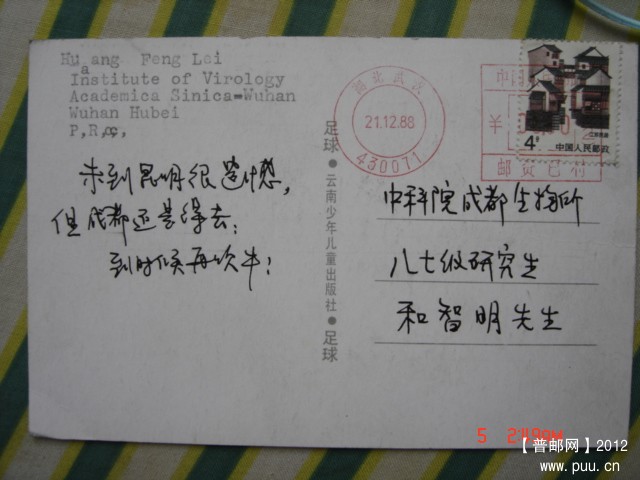 Huang Feng Lei
Institute of Virology
Academica Sinica-Wuhan
Wuhan Hubei
P,R,
湖北武汉
21.12.88
430071
中国
¥
邮资已付
4分
中国人民邮政
未到昆明很遗憾,
但成都还是得去;
到时候再吹牛!
足球●云南少年儿童出版社●足球
中科院成都生物所
八七级研究生
和智明先生
5 2:49PM
【普邮网】2012
www.puu.cn